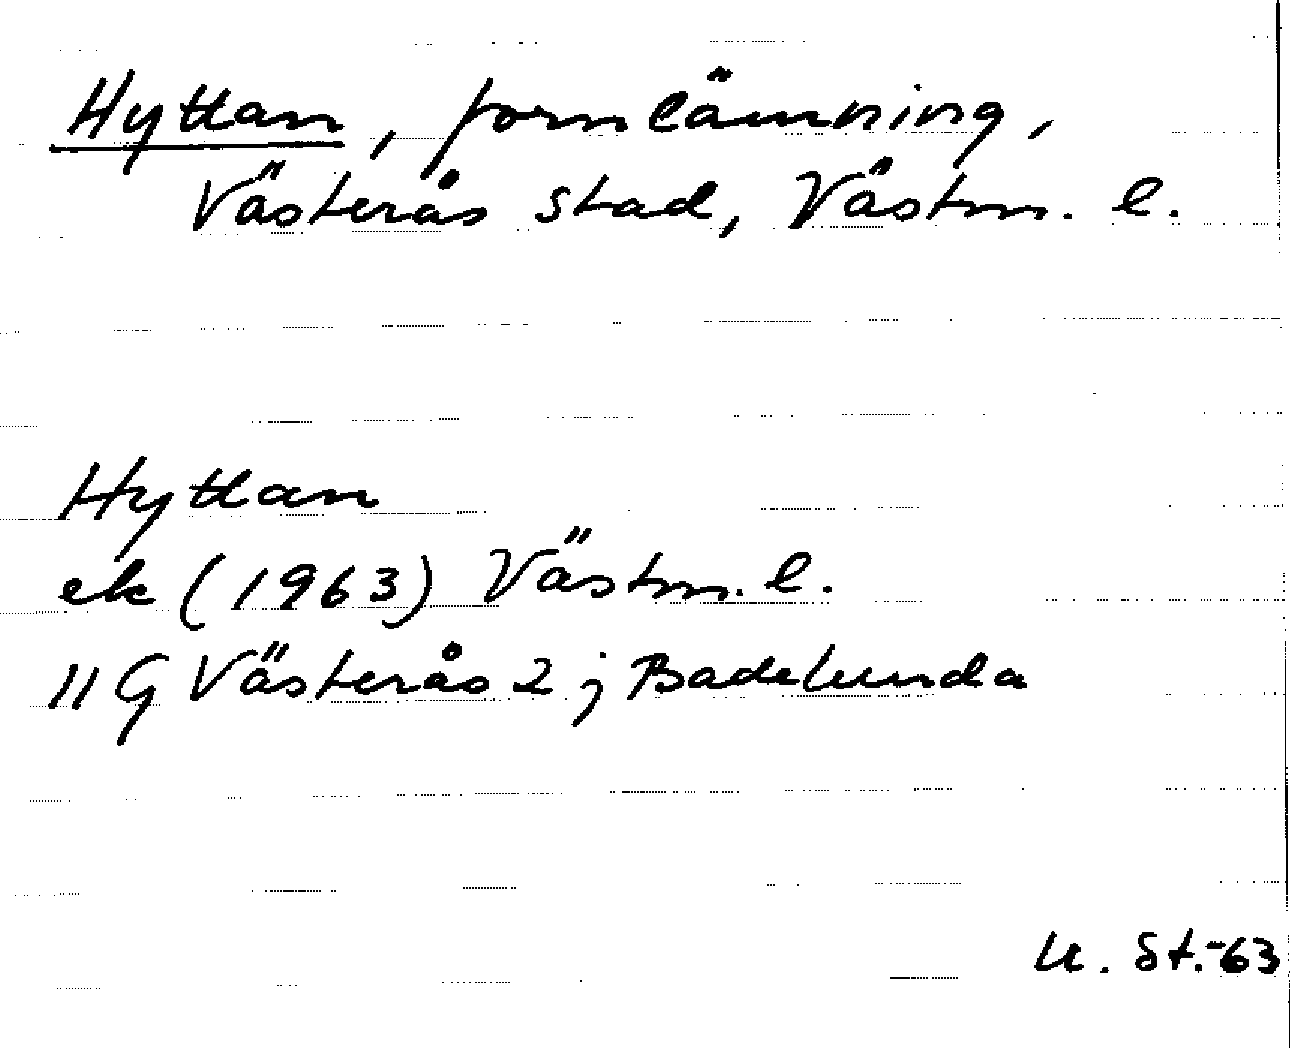 Hyttan, fornlämning,
Västerås stad, Västm. l.
Hyttan
ek (1963) Västm. l.
11 G Västerås 2 j Badelunda
U. St.-63